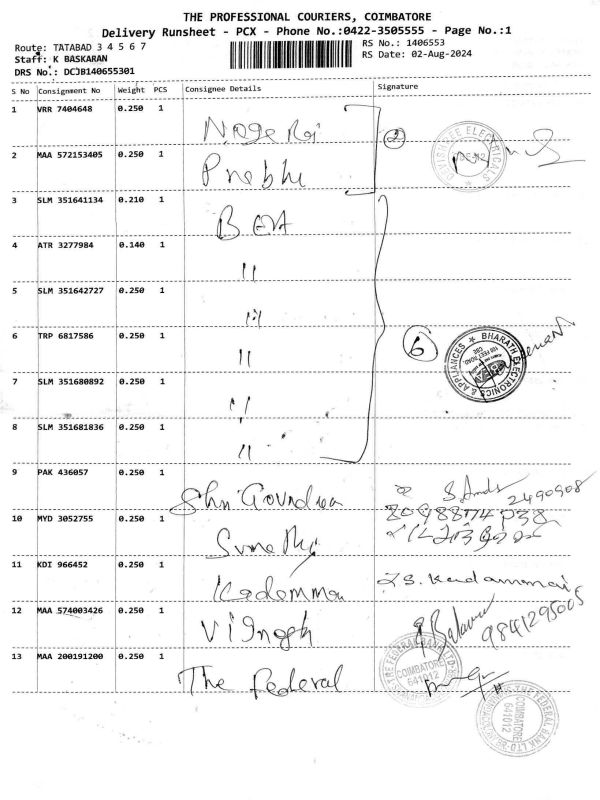 THE PROFESSIONAL COURIERS, COIMBATORE
Delivery Runsheet - PCX - Phone No.:0422-3505555 - Page No.:1
Route: TATABAD 3 4 5 6 7
RS No.: 1406553
Staff: K BASKARAN
RS Date: 02-Aug-2024
DRS No.: DCJB140655301
S No Consignment No Weight PCS Consignee Details Signature
1 VRR 7404648 0.250 1
2 MAA 572153405 0.250 1 Prabhu
2
3 SLM 351641134 0.210 1
4 ATR 3277984 0.140 1 "
5 SLM 351642727 0.250 1 "
6 TRP 6817586 0.250 1 "
6
BHARATH ELECTRONICS & APPLIANCES
7 SLM 351680892 0.250 1 "
8 SLM 351681836 0.250 1 "
9 PAK 436057 0.250 1
2490908
10 MYD 3052755 0.250 1
11 KDI 966452 0.250 1
12 MAA 574003426 0.250 1 Vignesh
9841295005
13 MAA 200191200 0.250 1 The Federal
THE FEDERAL BANK LTD
COIMBATORE
641012
THE FEDERAL BANK LTD
COIMBATORE
641012